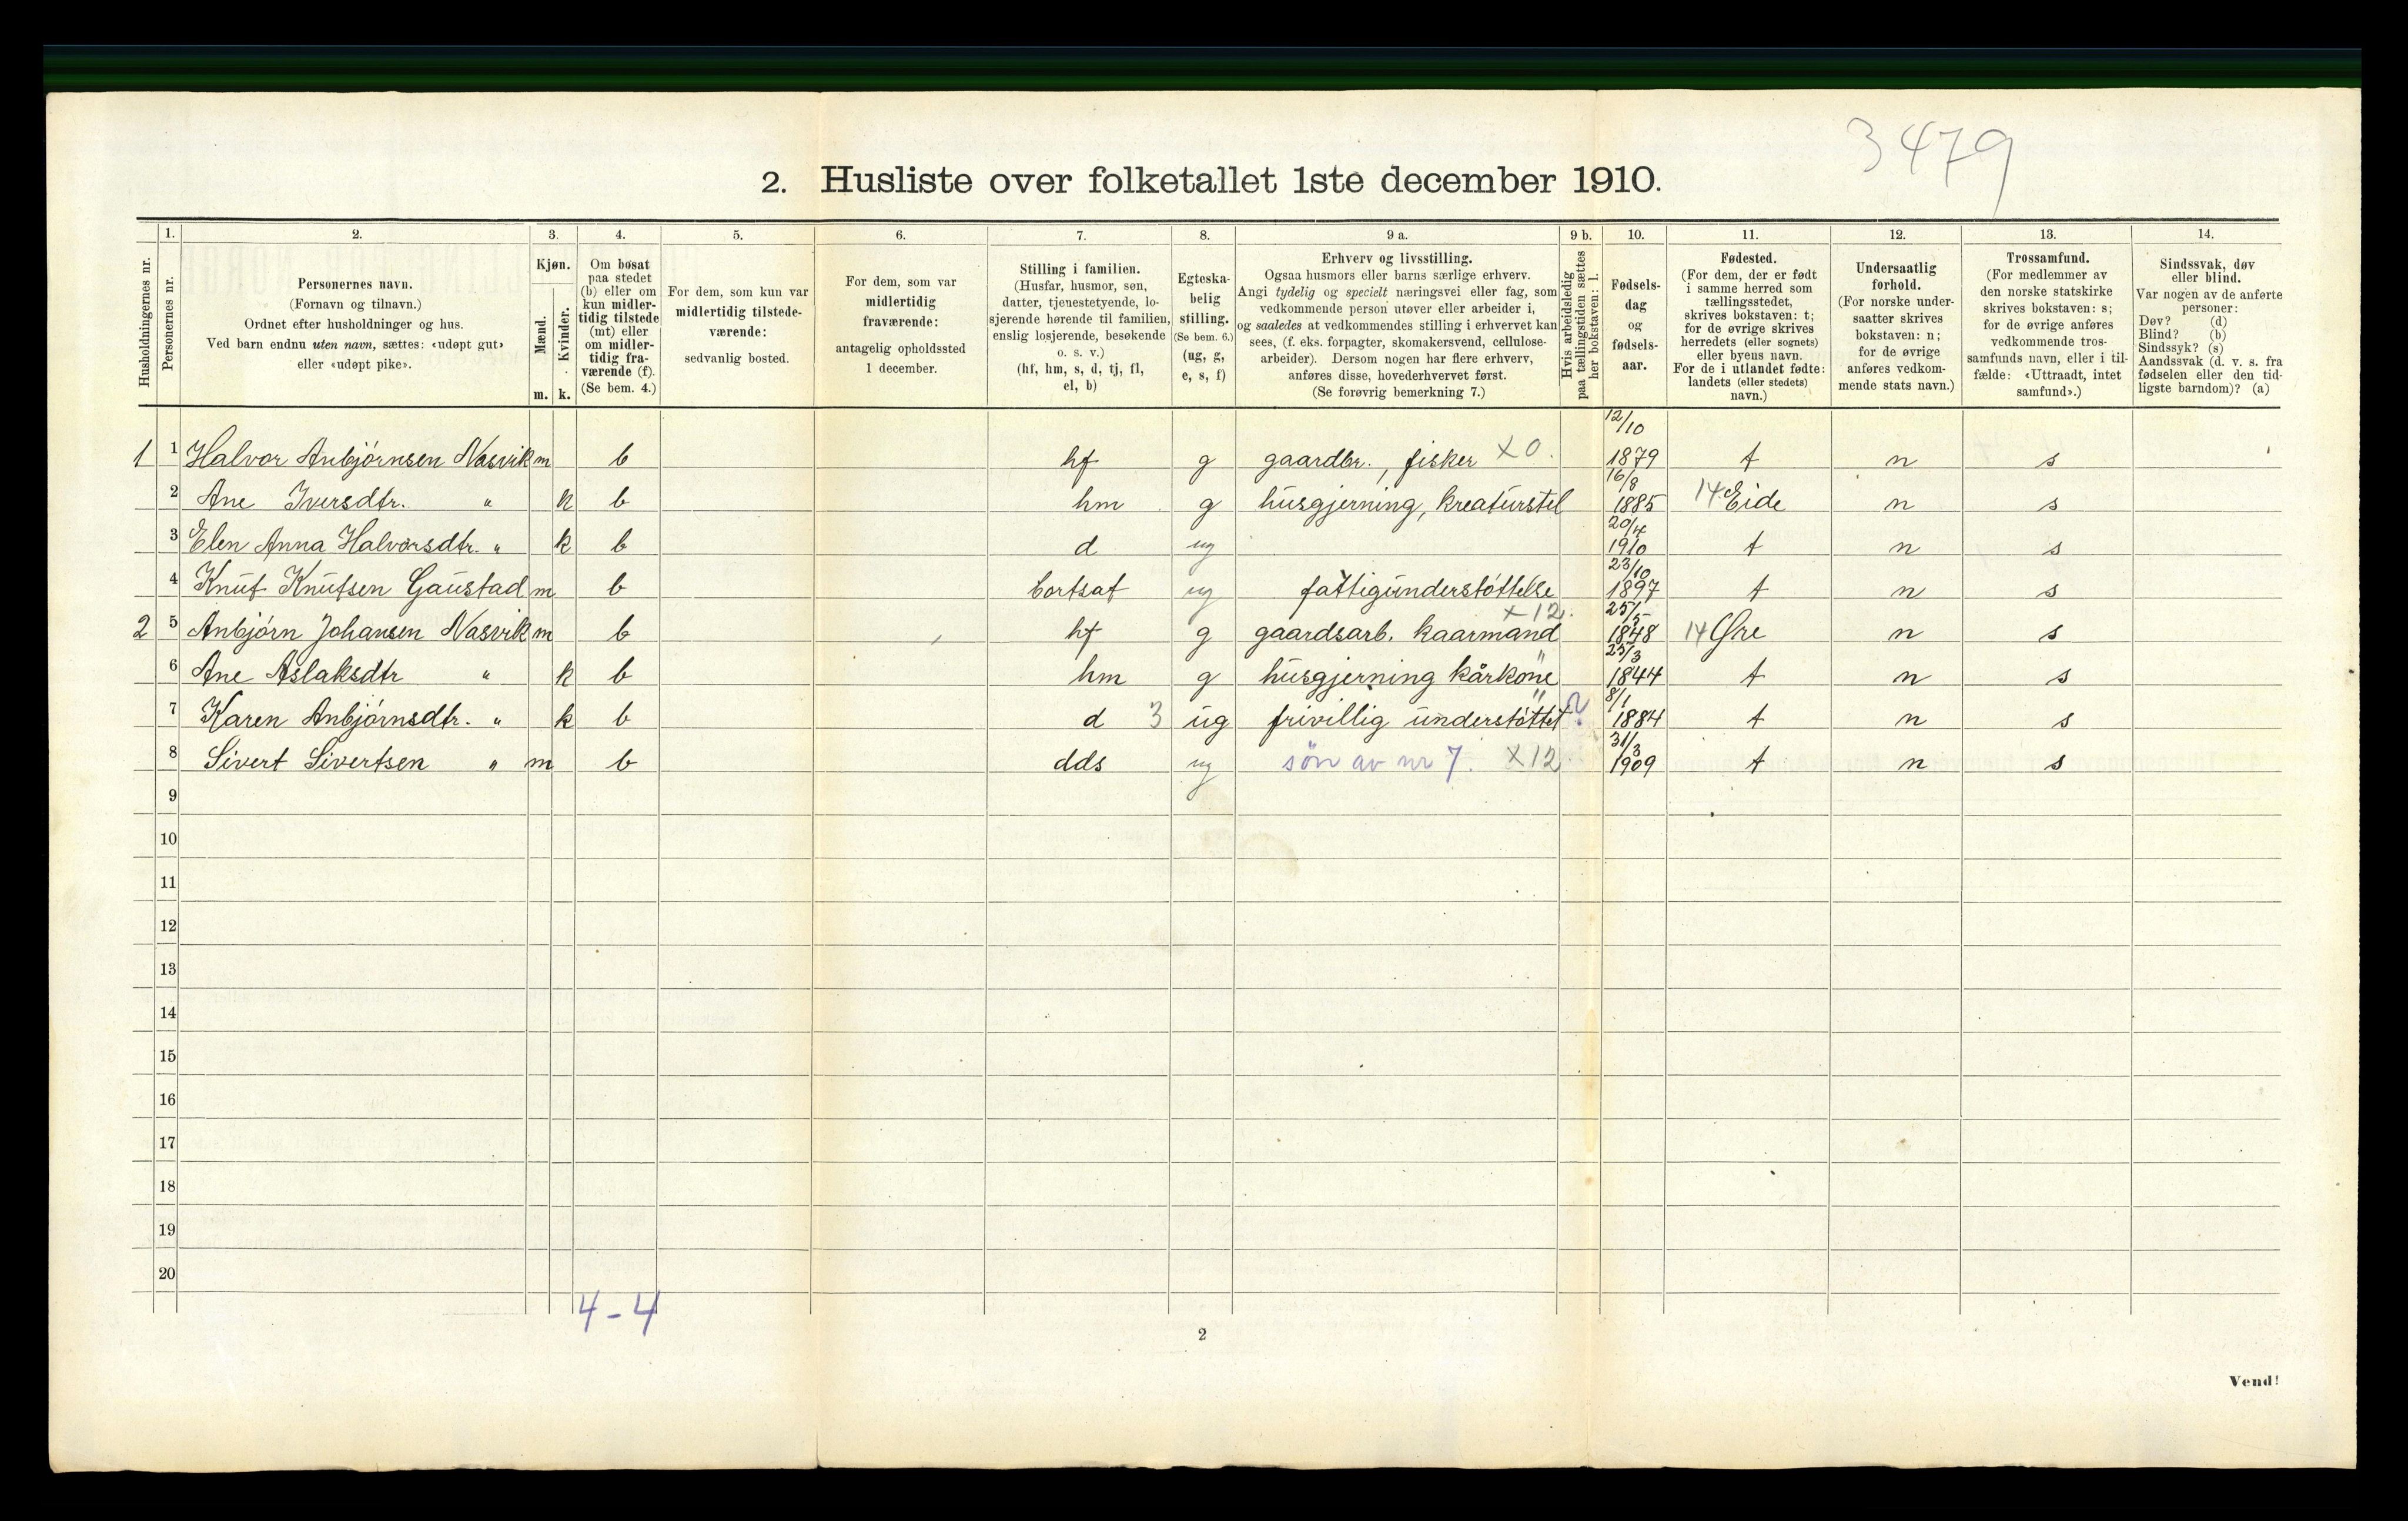 3479
2. Husliste over folketallet 1ste december 1910.
Husholdningernes nr.
1.
Personernes nr.
2.
Personernes navn.
(Fornavn og tilnavn.)
Ordnet efter husholdninger og hus.
Ved barn endnu uten navn, sættes: «udøpt gut»
eller «udøpt pike».
3.
Kjøn.
Mænd.
m.
Kvinder.
k.
4.
Om bosat
paa stedet
(b) eller om
kun midler-
tidig tilstede
(mt) eller
om midler-
tidig fra-
værende (f).
(Se bem. 4.)
5.
For dem, som kun var
midlertidig tilstede-
værende:
sedvanlig bosted.
6.
For dem, som var
midlertidig
fraværende:
antagelig opholdssted
1 december.
7.
Stilling i familien.
(Husfar, husmor, søn,
datter, tjenestetyende, lo-
sjerende hørende til familien,
enslig losjerende, besøkende
o. s. v.)
(hf, hm, s, d, tj, fl,
el, b)
8.
Egteska-
belig
stilling.
(Se bem. 6.)
(ug, g,
e, s, f)
9 a.
Erhverv og livsstilling.
Ogsaa husmors eller barns særlige erhverv.
Angi tydelig og specielt næringsvei eller fag, som
vedkommende person utøver eller arbeider i,
og saaledes at vedkommendes stilling i erhvervet kan
sees, (f. eks. forpagter, skomakersvend, cellulose-
arbeider). Dersom nogen har flere erhverv,
anføres disse, hovederhvervet først.
(Se forøvrig bemerkning 7.)
9 b.
Hvis arbeidsledig
paa tællingstiden sættes
her bokstaven: l.
10.
Fødsels-
dag
og
fødsels-
aar.
11.
Fødested.
(For dem, der er født
i samme herred som
tællingsstedet,
skrives bokstaven: t;
for de øvrige skrives
herredets (eller sognets)
eller byens navn.
For de i utlandet fødte:
landets (eller stedets)
navn.)
12.
Undersaatlig
forhold.
(For norske under-
saatter skrives
bokstaven: n;
for de øvrige
anføres vedkom-
mende stats navn.)
13.
Trossamfund.
(For medlemmer av
den norske statskirke
skrives bokstaven: s;
for de øvrige anføres
vedkommende tros-
samfunds navn, eller i til-
fælde: «Uttraadt, intet
samfund».)
14.
Sindssvak, døv
eller blind.
Var nogen av de anførte
personer:
Døv? (d)
Blind? (b)
Sindssyk? (s)
Aandssvak (d. v. s. fra
fødselen eller den tid-
ligste barndom)? (a)
1 1 Halvor Anbjörnsen Nasvik m b hf g gaardbr., fisker X0. 12/10 1879 t n s
2 Ane Iversdtr. " k b hm g husgjerning, kreaturstel 16/8 1885 14 Eide n s
3 Elen Anna Halvorsdtr. " k b d ug 20/4 1910 t n s
4 Knut Knutsen Gaustad m b bortsat ug fattigunderstöttelse 23/10 1897 t n s
2 5 Anbjörn Johansen Nasvik m b hf g gaardsarb. kaarmand X12. 25/5 1848 14 Øre n s
6 Ane Aslaksdtr " k b hm g husgjerning kårkone " 25/3 1844 t n s
7 Karen Anbjörnsdtr. " k b d 3 ug frivillig understöttet " ? 8/1 1884 t n s
8 Sivert Sivertsen " m b dds ug sön av nr 7. X12. 31/3 1909 t n s
9
10
11
12
13
14
15
16
17
18
19
20
4-4
2
Vend!